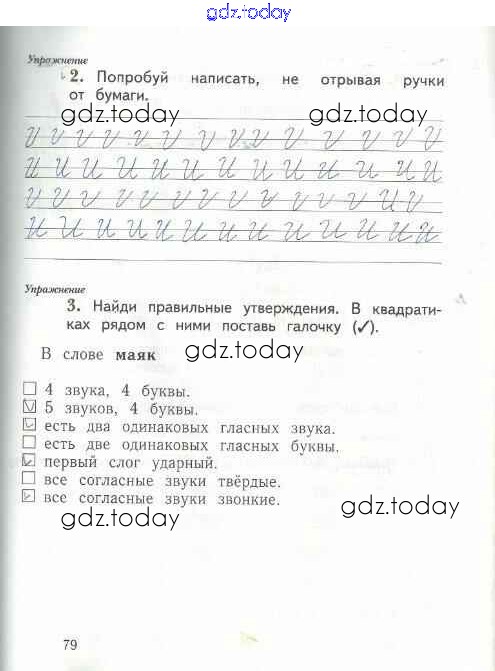 gdz.today
Упражнение
2. Попробуй написать, не отрывая ручки
от бумаги.
gdz.today gdz.today
Упражнение
3. Найди правильные утверждения. В квадрати-
ках рядом с ними поставь галочку (✓).
В слове маяк gdz.today
4 звука, 4 буквы.
5 звуков, 4 буквы.
есть два одинаковых гласных звука.
есть две одинаковых гласных буквы.
первый слог ударный.
все согласные звуки твёрдые.
все согласные звуки звонкие.
gdz.today gdz.today
79